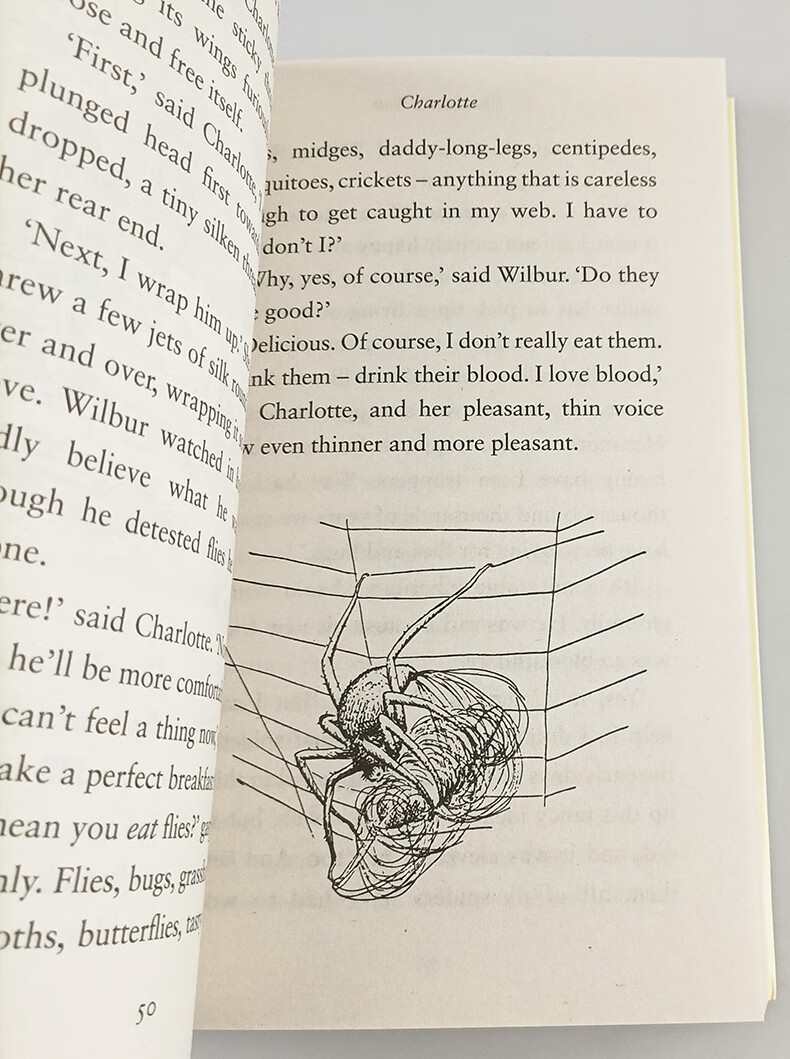 Charlotte
its wings
and free itself.
‘First,’ said Charlotte,
plunged head first
dropped, a tiny silken
her rear end.
‘Next, I wrap him up.’
a few jets of silk
and over, wrapping it
Wilbur watched in
believe what he
he detested flies
said Charlotte.
he’ll be more
can’t feel a thing now,
a perfect
you eat flies?’
Flies, bugs,
butterflies,
50
Charlotte
midges, daddy-long-legs, centipedes,
crickets – anything that is careless
to get caught in my web. I have to
don’t I?’
yes, of course,’ said Wilbur. ‘Do they
good?’
Delicious. Of course, I don’t really eat them.
them – drink their blood. I love blood,’
Charlotte, and her pleasant, thin voice
even thinner and more pleasant.